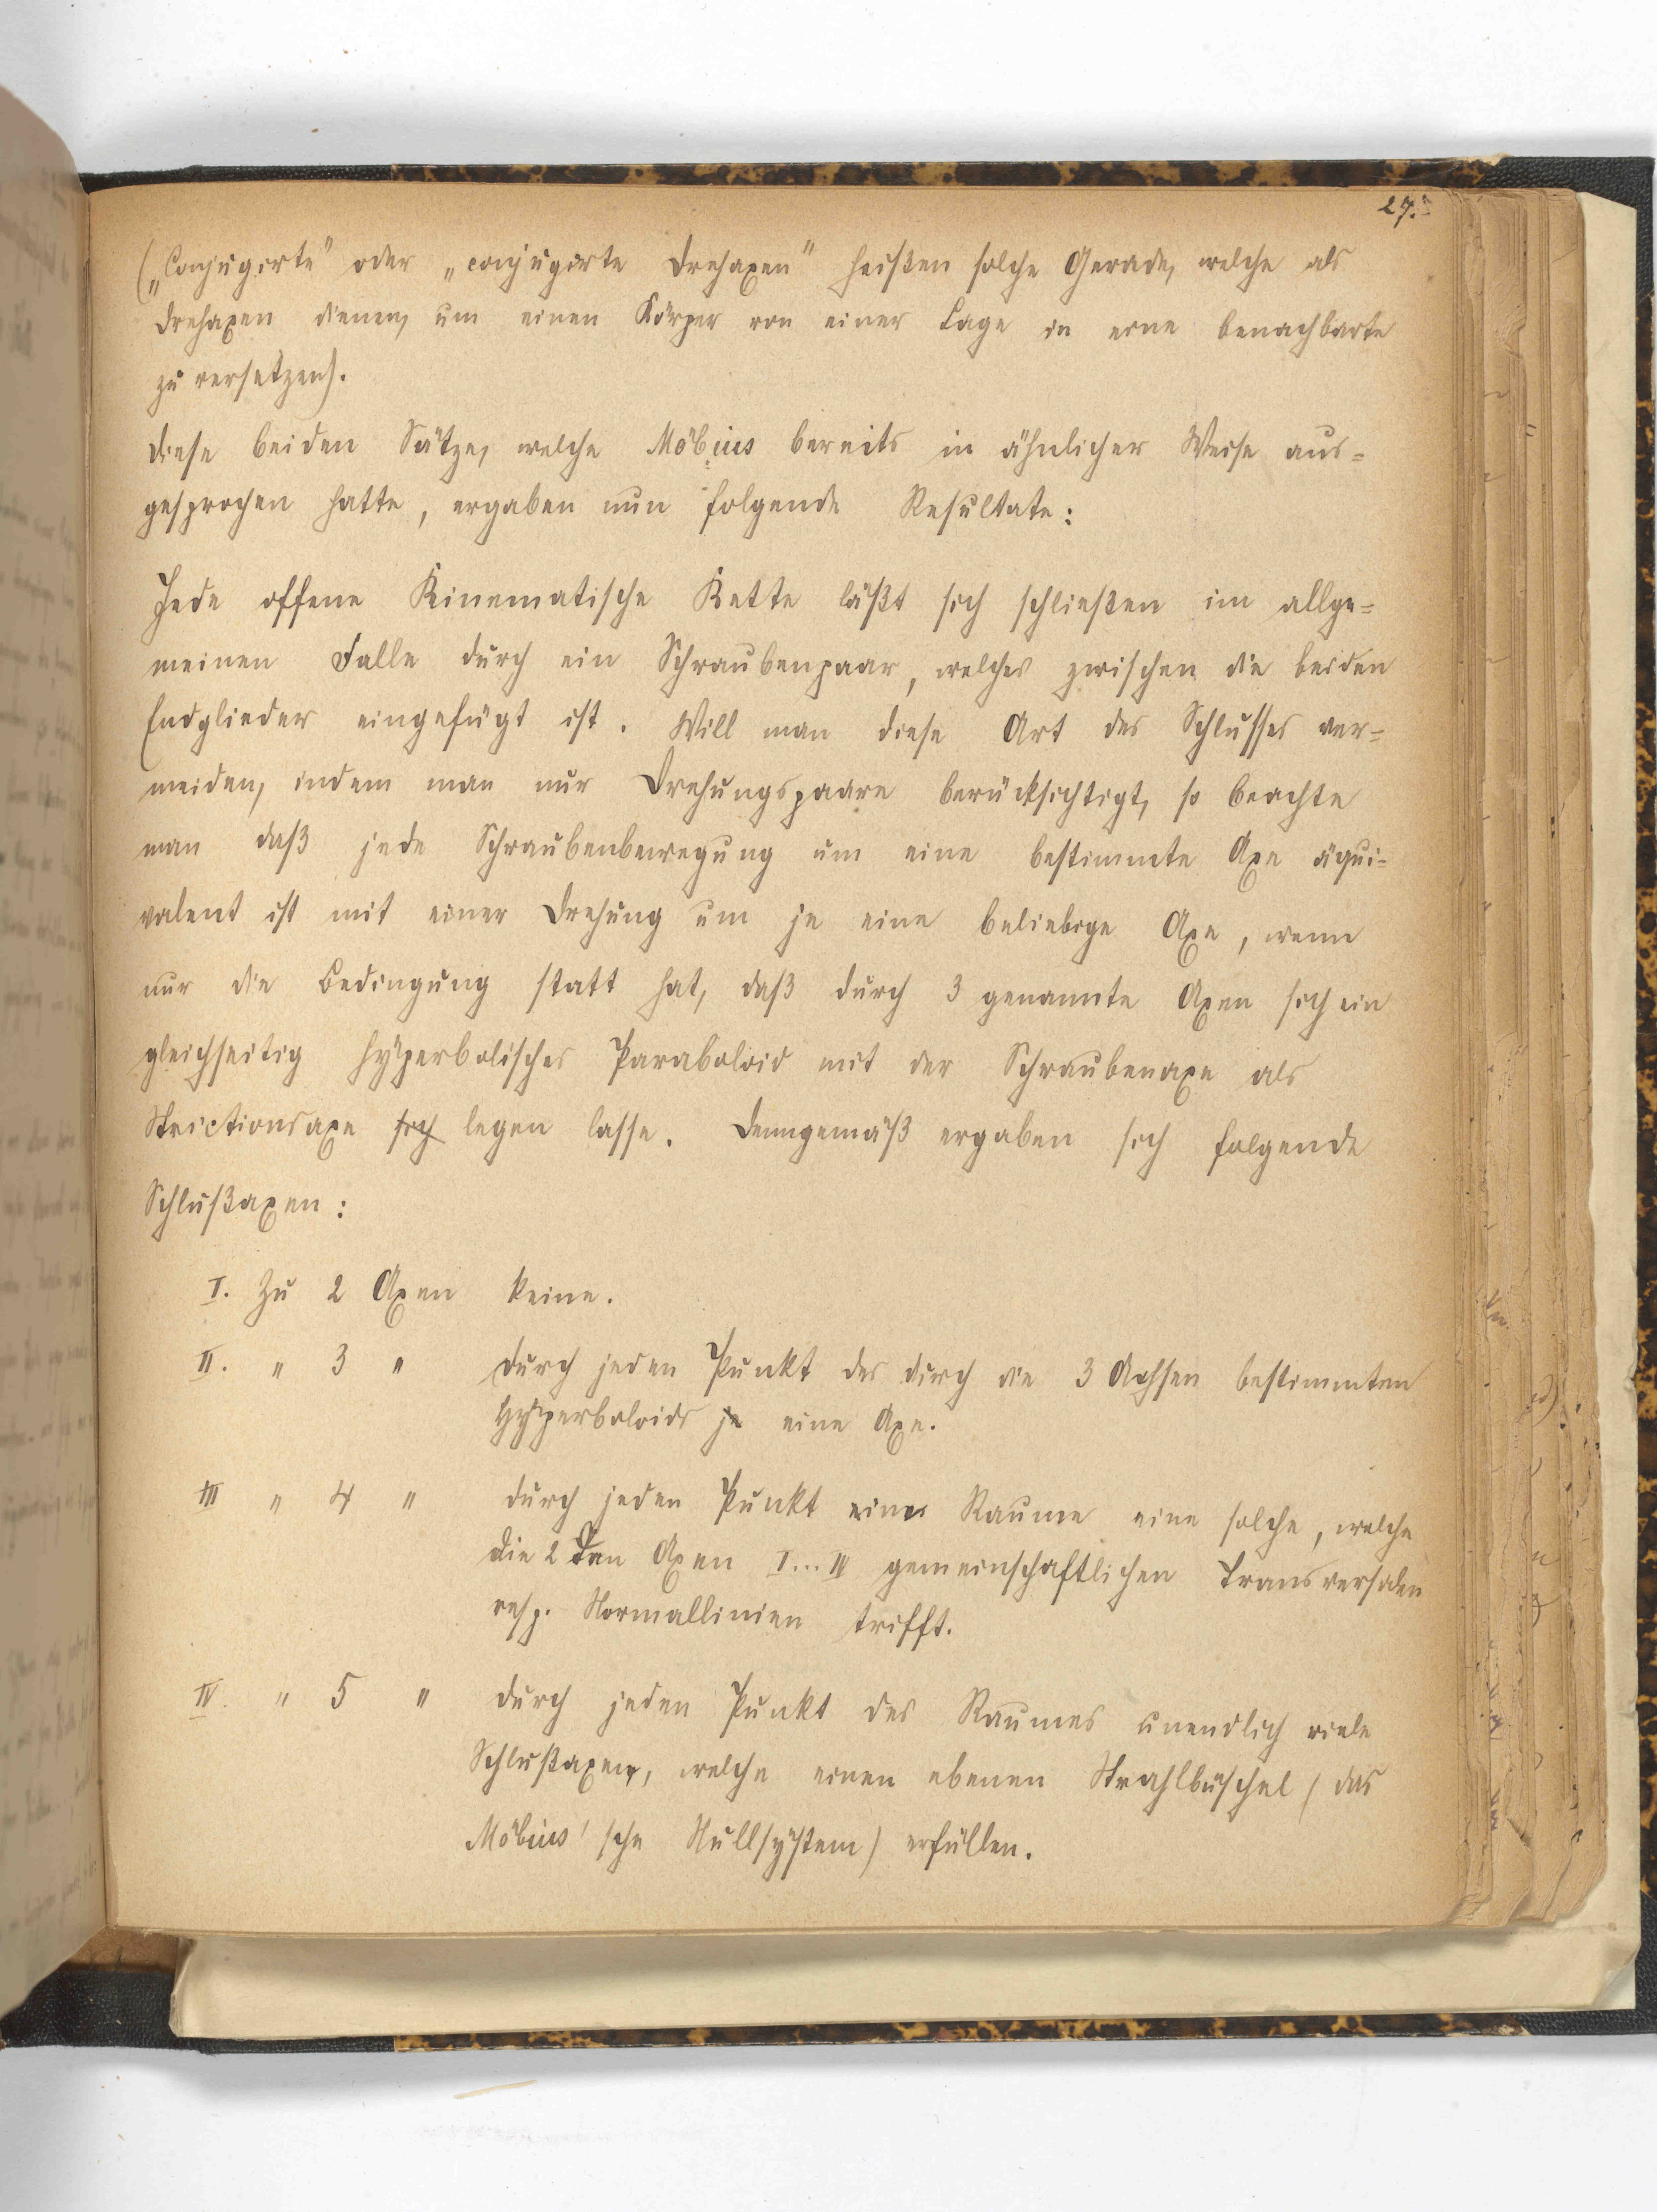 27.
(„Conjugirte" oder „conjugirte Drehaxen" heißen solche Gerade, welche als
Drehaxen dienen, um einen Körper von einer Lage in eine benachbarte
zu versetzen).
Diese beiden Sätze, welche Möbius bereits in ähnlicher Weise aus=
gesprochen hatte, ergaben nun folgende Resultate:
Jede offene Kinematische Kette läßt sich schließen im allge=
meinen Falle durch ein Schraubenpaar, welches zwischen die beiden
Endglieder eingefügt ist. Will man diese Art des Schlusses ver=
meiden, indem man nur Drehungspaare berücksichtigt, so beachte
man daß jede Schraubenbewegung um eine bestimmte Axe äqui=
valent ist mit einer Drehung um je eine beliebige Axe, wenn
nur die Bedingung statt hat, daß durch 3 genannte Axen sich ein
gleichseitig hyperbolisches Paraboloid mit der Schraubenaxe als
Strictionsaxe sich legen lasse. Demgemäß ergaben sich folgende
Schlußaxen:
I. Zu 2 Axen keine.
II. " 3 " durch jeden Punkt des durch die 3 Achsen bestimmten
Hyperboloids je eine Axe.
III " 4 " durch jeden Punkt eines Raumes eine solche, welche
die 2 den Axen I...IV gemeinschaftlichen Transversalen
resp. Normallinien trifft.
IV. " 5 " durch jeden Punkt des Raumes unendlich viele
Schlußaxen, welche einen ebenen Strahlbüschel (das
Möbius'sche Nullsystem) erfüllen.